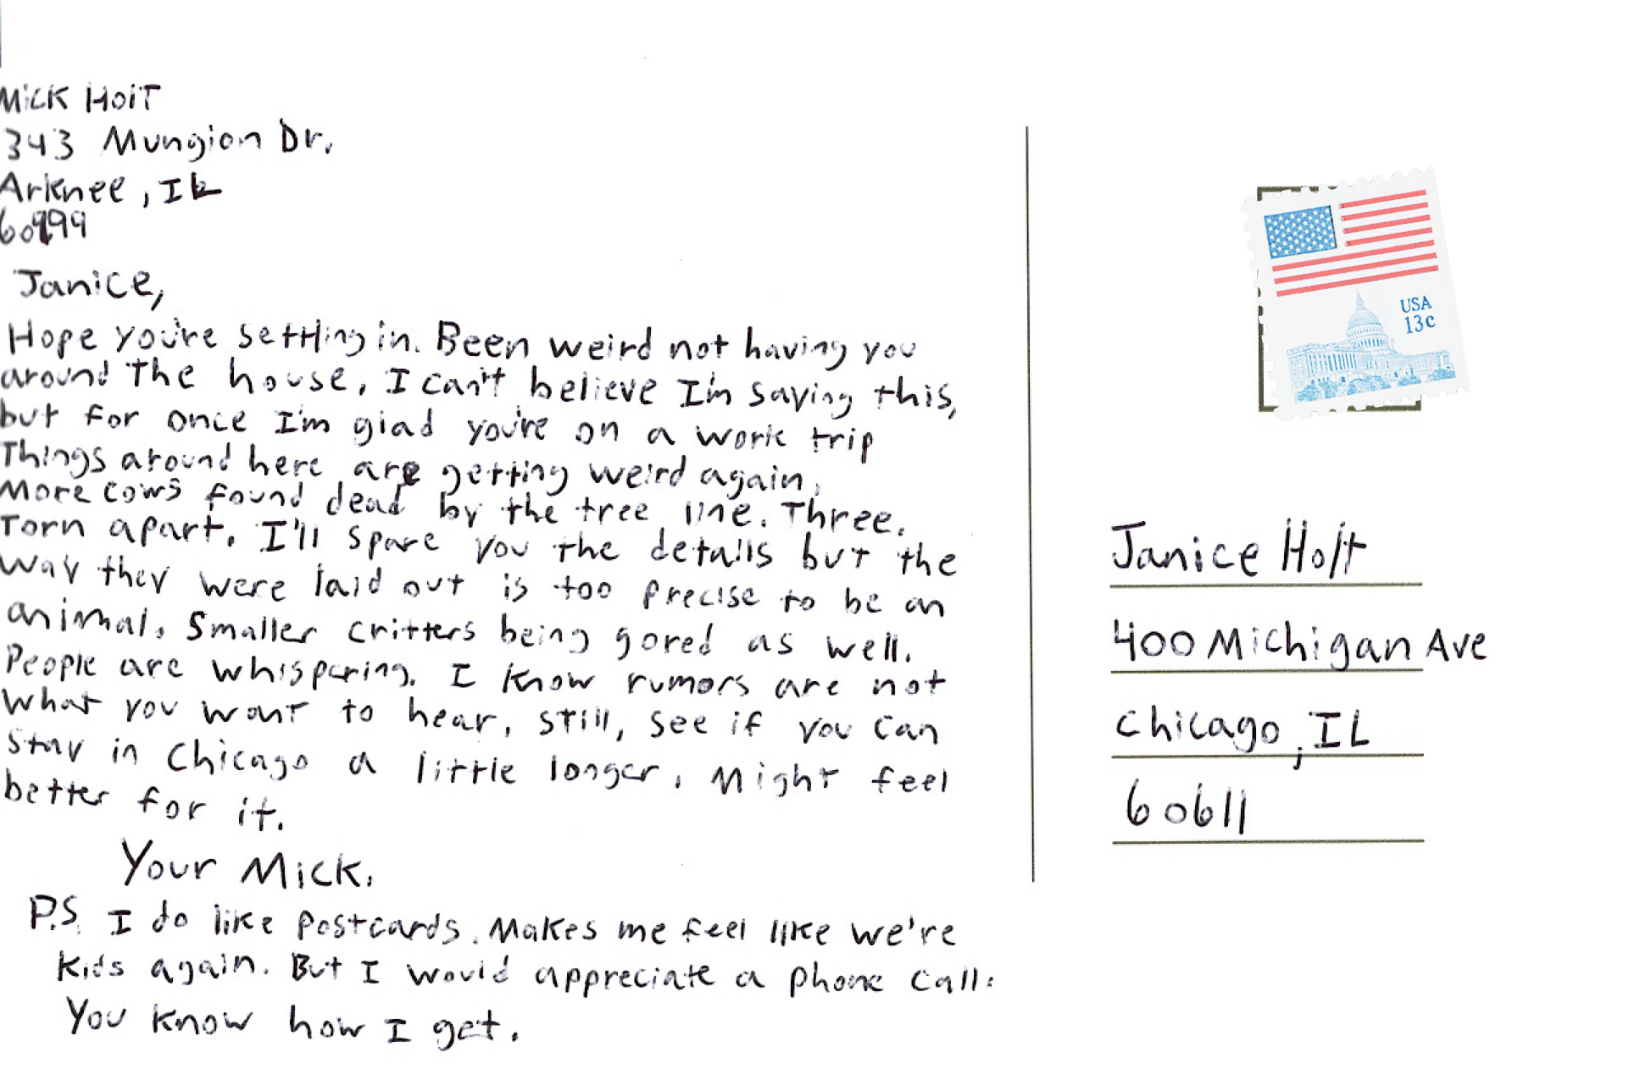 Mick Holt
343 Mungion Dr.
Arknee, IL
60999
Janice,
Hope you're settling in. Been weird not having you
around the house, I can't believe I'm saying this,
but for once I'm glad you're on a work trip
Things around here are getting weird again,
More cows found dead by the tree line. Three.
Torn apart. I'll spare you the details but the
way they were laid out is too precise to be an
animal. Smaller critters being gored as well.
People are whispering. I know rumors are not
what you want to hear, still, see if you can
stay in Chicago a little longer. Might feel
better for it.
Your Mick.
P.S. I do like postcards. Makes me feel like we're
kids again. But I would appreciate a phone call.
You know how I get.
USA
13c
Janice Holt
400 Michigan Ave
Chicago, IL
60611